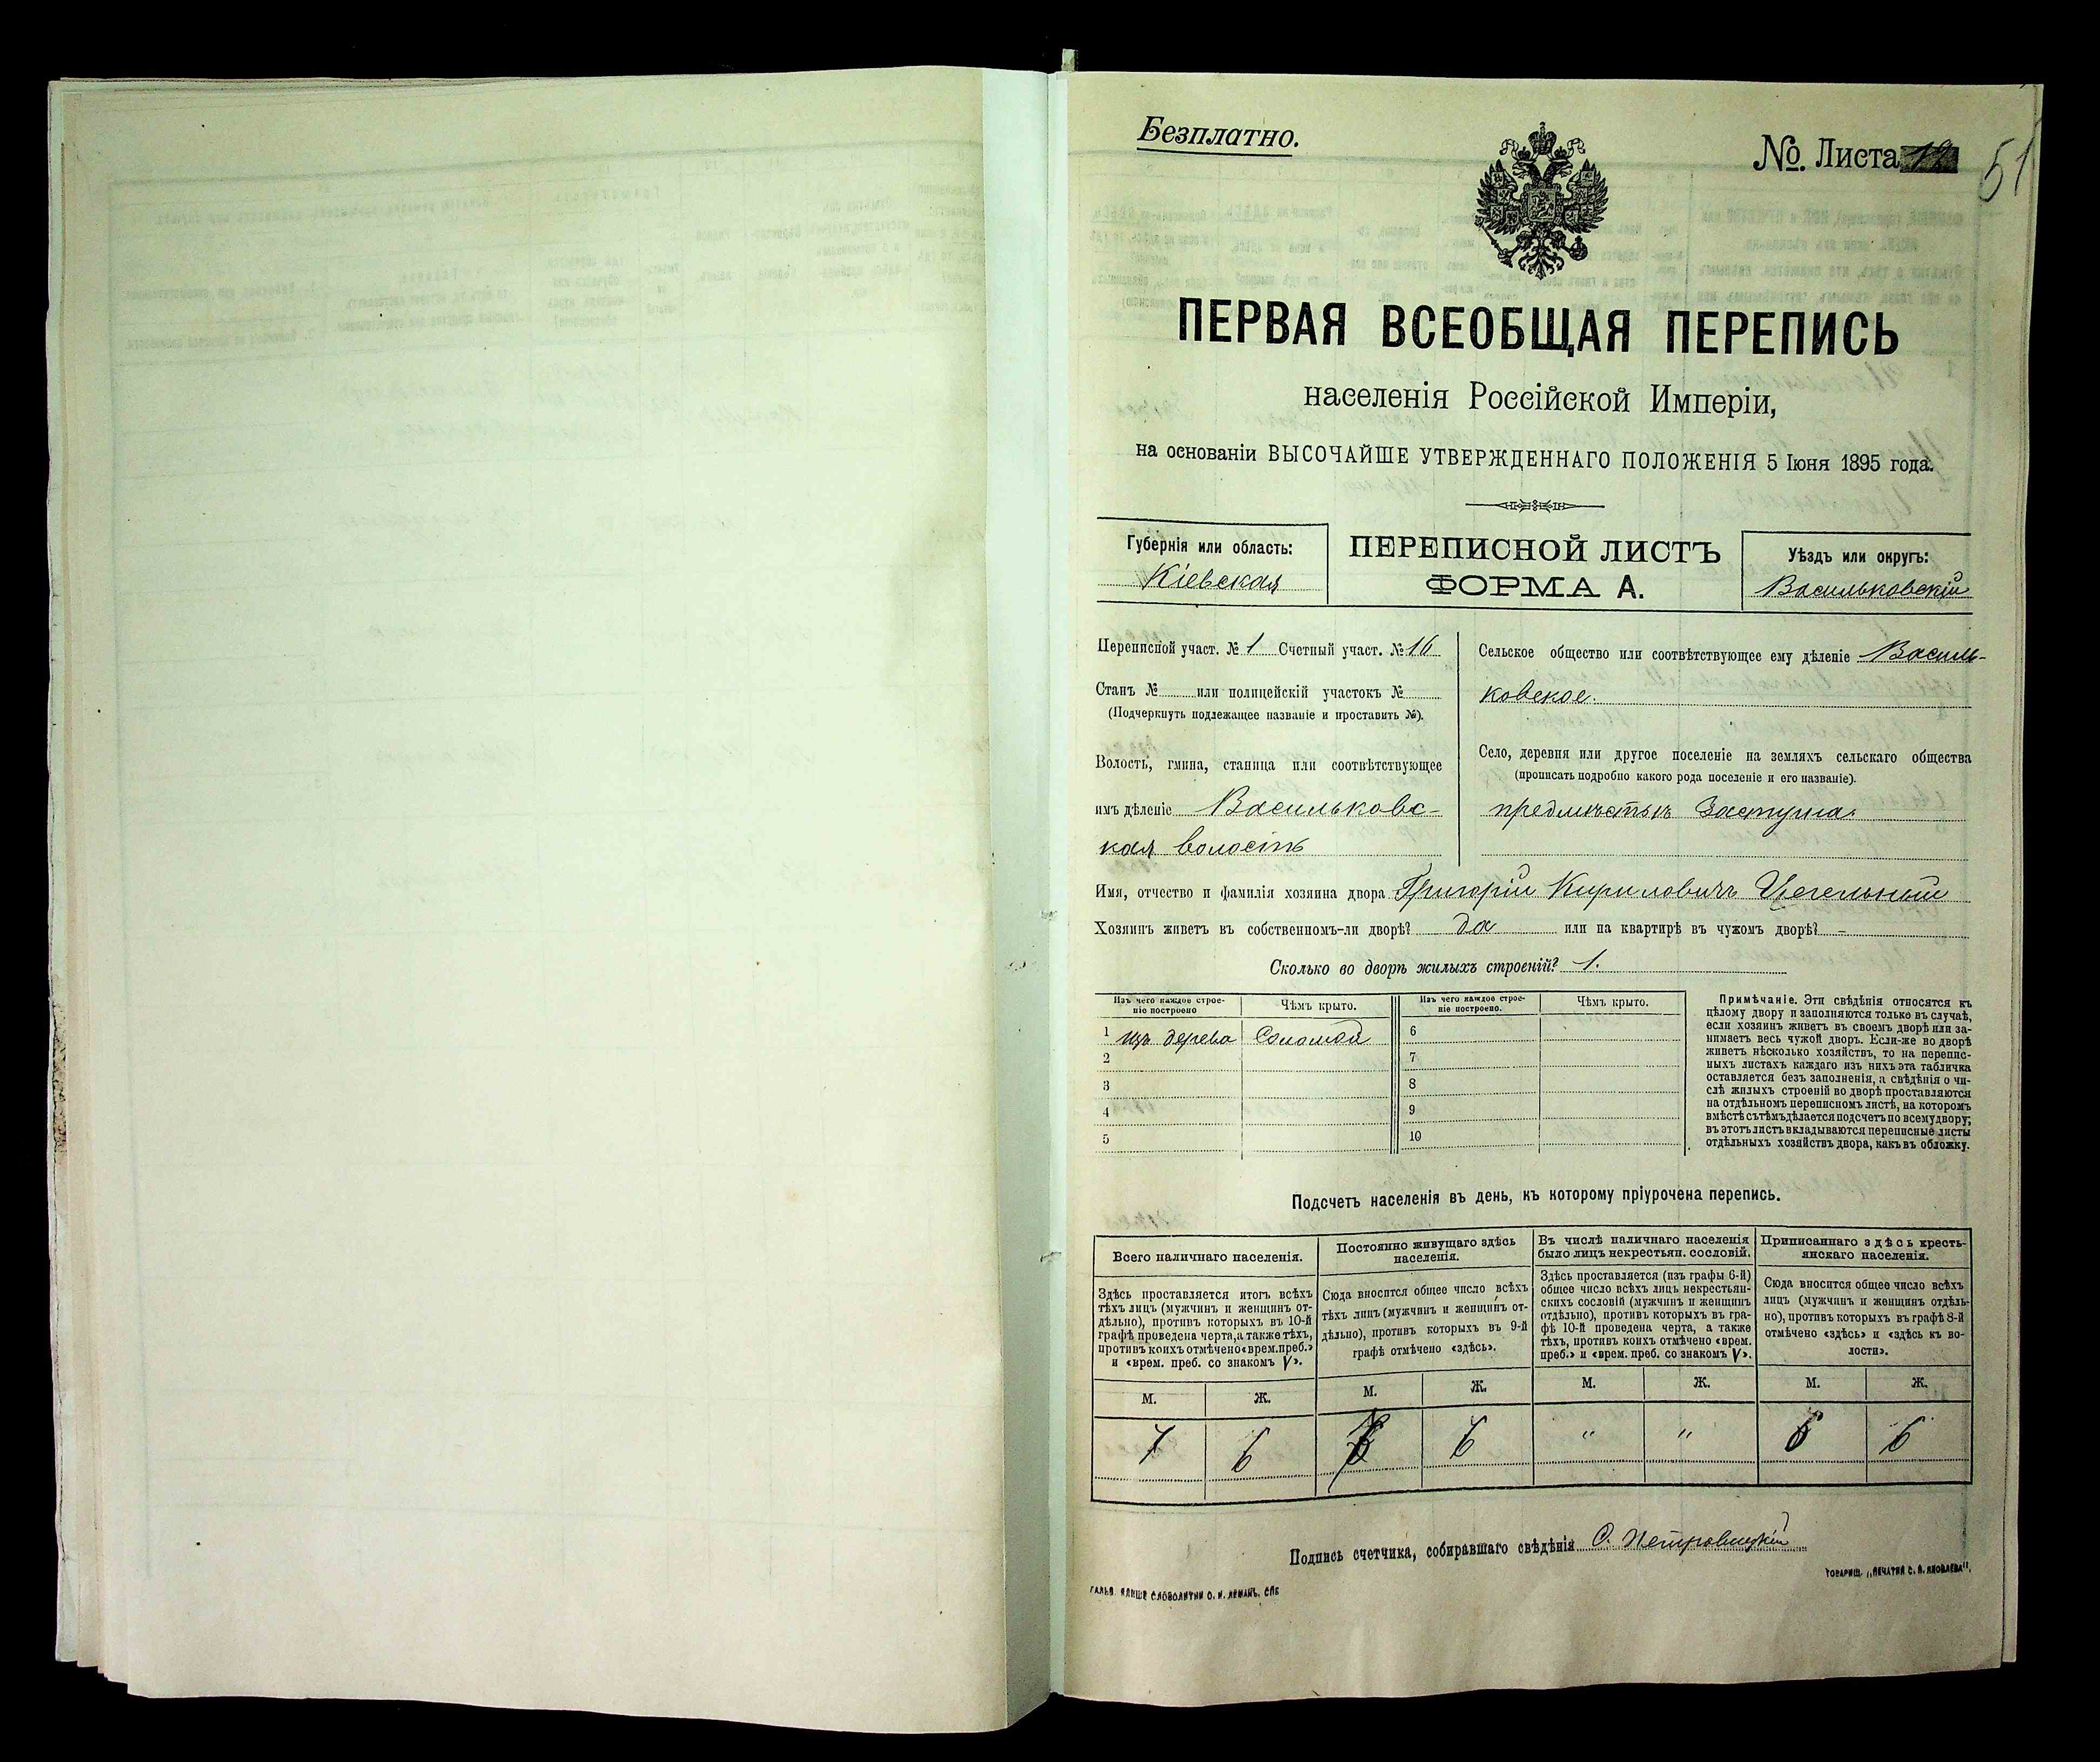 Безплатно.
№ Листа 12
51
ПЕРВАЯ ВСЕОБЩАЯ ПЕРЕПИСЬ
населенія Россійской Имперіи,
на основаніи ВЫСОЧАЙШЕ УТВЕРЖДЕННАГО ПОЛОЖЕНІЯ 5 Іюня 1895 года.
Губернія или область:
Кіевская
ПЕРЕПИСНОЙ ЛИСТЪ
ФОРМА А.
Уѣздъ или округъ:
Васильковскій
Переписной участ. № 1 Счетный участ. № 16
Станъ № или полицейскій участокъ №
(Подчеркнуть подлежащее названіе и проставить №).
Волость, гмина, станица или соотвѣтствующее
имъ дѣленіе Васильковс-
кая волость
Сельское общество или соотвѣтствующее ему дѣленіе Василь-
ковское.
Село, деревня или другое поселеніе на земляхъ сельскаго общества
(прописать подробно какого рода поселеніе и его названіе).
предмѣстье Застугна
Имя, отчество и фамилія хозяина двора Григорій Кириловичъ Цегельный
Хозяинъ живетъ въ собственномъ-ли дворѣ? да или на квартирѣ въ чужомъ дворѣ? –
Сколько во дворѣ жилыхъ строеній? 1.
Изъ чего каждое строе-
ніе построено
Чѣмъ крыто.
Изъ чего каждое строе-
ніе построено.
Чѣмъ крыто.
1 изъ дерева Соломой 6
2 7
3 8
4 9
5 10
Примѣчаніе. Эти свѣдѣнія относятся къ
цѣлому двору и заполняются только въ случаѣ,
если хозяинъ живетъ въ своемъ дворѣ или за-
нимаетъ весь чужой дворъ. Если-же во дворѣ
живетъ нѣсколько хозяйствъ, то на перепис-
ныхъ листахъ каждаго изъ нихъ эта табличка
оставляется безъ заполненія, а свѣдѣнія о чи-
слѣ жилыхъ строеній во дворѣ проставляются
на отдѣльномъ переписномъ листѣ, на которомъ
вмѣстѣ съ тѣмъ дѣлается подсчетъ по всему двору;
въ этотъ листъ вкладываются переписные листы
отдѣльныхъ хозяйствъ двора, какъ въ обложку.
Подсчетъ населенія въ день, къ которому пріурочена перепись.
Всего наличнаго населенія.
Здѣсь проставляется итогъ всѣхъ
тѣхъ лицъ (мужчинъ и женщинъ от-
дѣльно), противъ которыхъ въ 10-й
графѣ проведена черта, а также тѣхъ,
противъ коихъ отмѣчено «врем. преб.»
и «врем. преб. со знакомъ V».
Постоянно живущаго здѣсь
населенія.
Сюда вносится общее число всѣхъ
тѣхъ лицъ (мужчинъ и женщинъ от-
дѣльно), противъ которыхъ въ 9-й
графѣ отмѣчено «здѣсь».
Въ числѣ наличнаго населенія
было лицъ некрестьян. сословій.
Здѣсь проставляется (изъ графы 6-й)
общее число всѣхъ лицъ некрестьян-
скихъ сословій (мужчинъ и женщинъ
отдѣльно), противъ которыхъ въ гра-
фѣ 10-й проведена черта, а также
тѣхъ, противъ коихъ отмѣчено «врем.
преб.» и «врем. преб. со знакомъ V».
Приписаннаго здѣсь кресть-
янскаго населенія.
Сюда вносится общее число всѣхъ
лицъ (мужчинъ и женщинъ отдѣль-
но), противъ которыхъ въ графѣ 8-й
отмѣчено «здѣсь» и «здѣсь къ во-
лости».
М. Ж. М. Ж. М. Ж. М. Ж.
7 6 6 " " 6 6
Подпись счетчика, собиравшаго свѣдѣнія С. Петровицкій
ГАЛЬВ. КЛИШЕ СЛОВОЛИТНИ О. И. ЛЕМАНЪ. СПБ
ТОВАРИЩ. „ПЕЧАТНЯ С. П. ЯКОВЛЕВА".